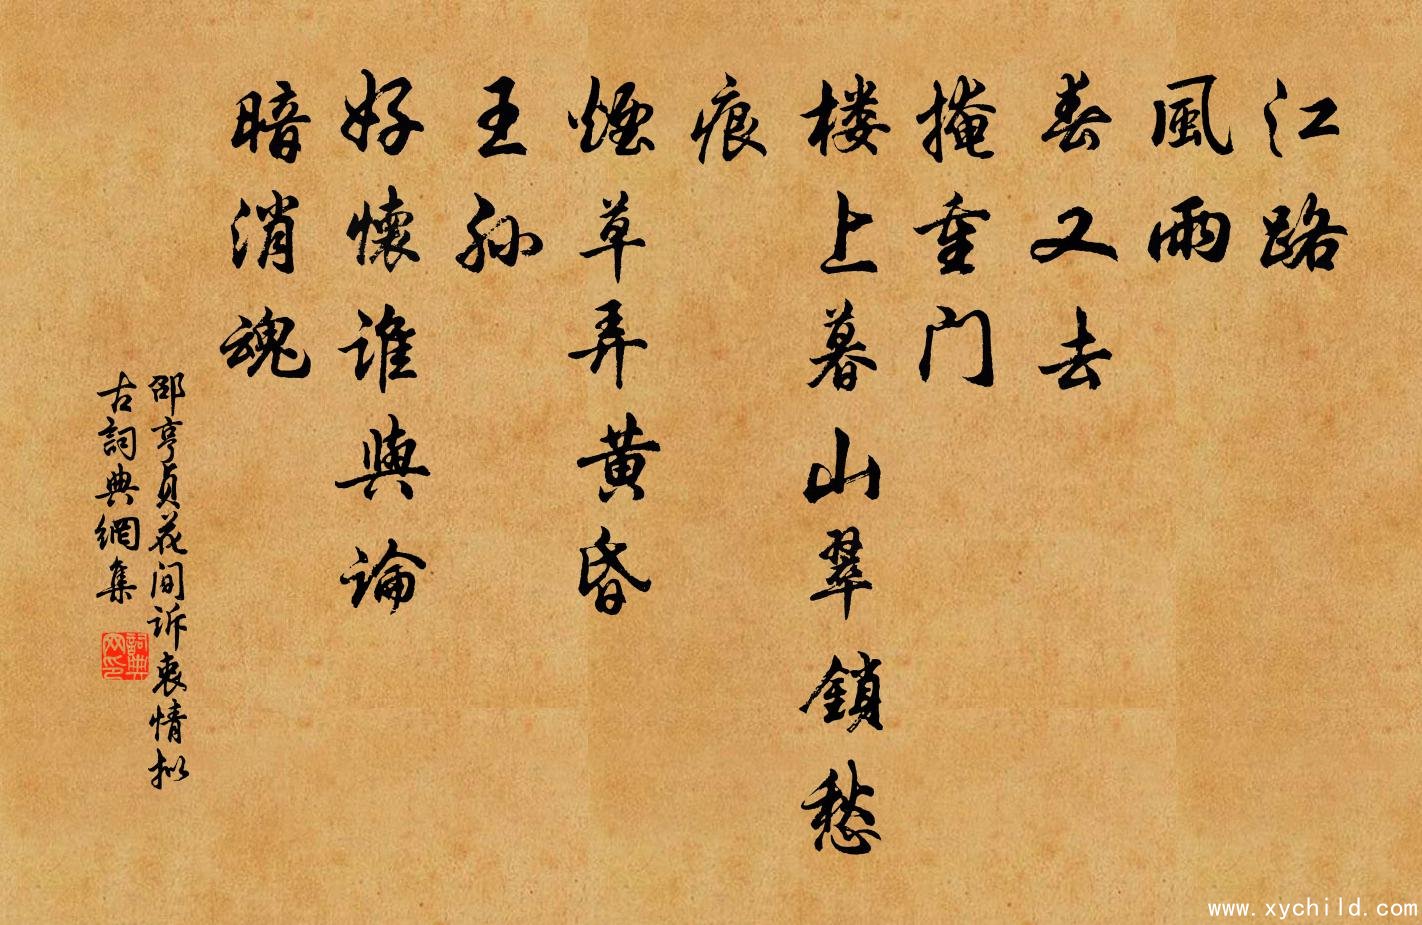 江路
風雨
春又去
掩重门
楼上暮山翠鎖愁
痕
煙草弄黄昏
王孙
好懷谁與論
暗消魂
邵亨貞花间诉衷情拟
古詞典網集
詞典网印
www.xychild.com